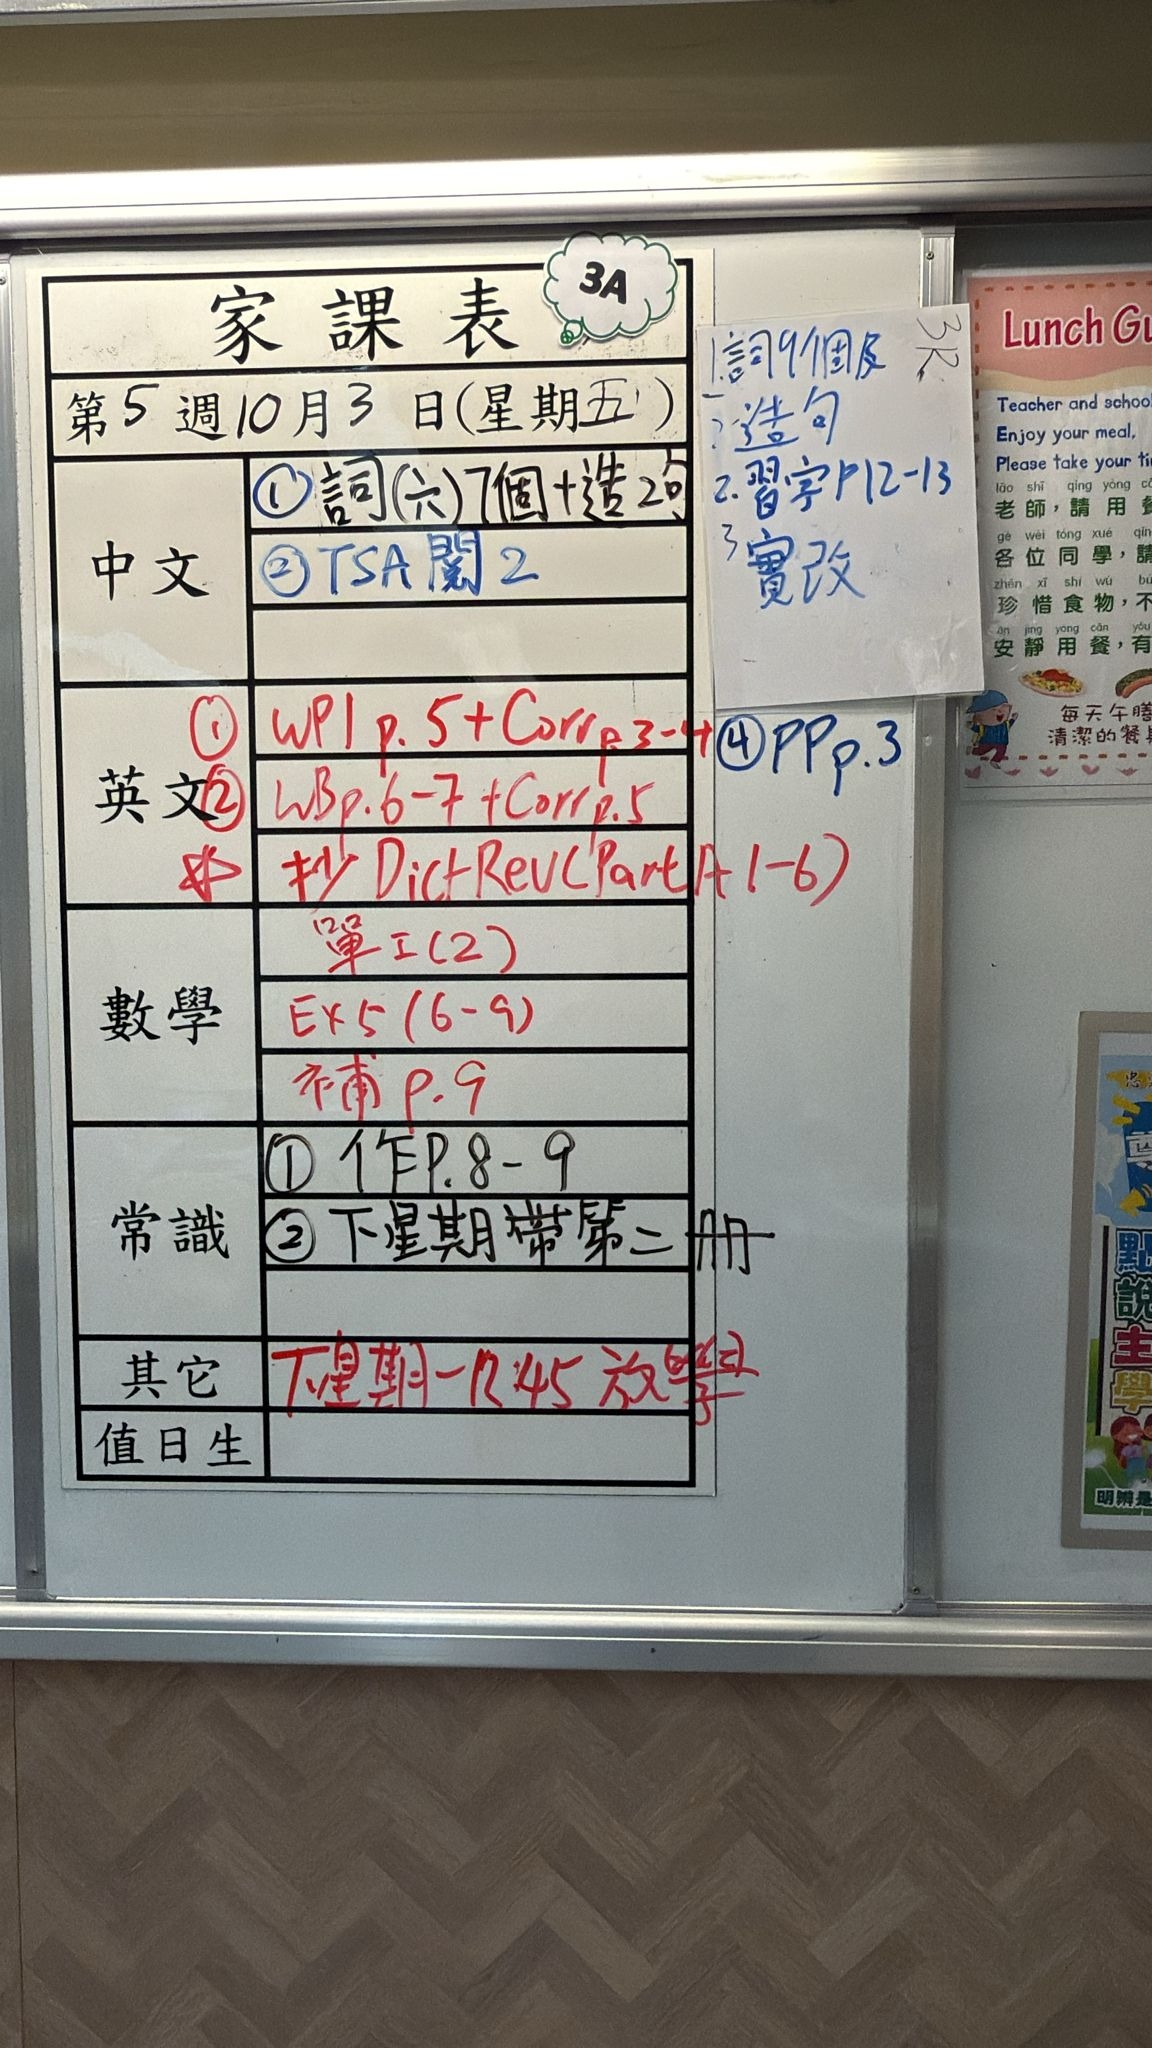 家課表
3A
第5週10月3日(星期五)
中文
①詞(六)7個+造2句
②TSA閱2
英文
① WP1 p.5+Corr p.3-4
② WBp.6-7+Corr p.5
抄 Dict Rev (Part A 1-6)
④PP p.3
數學
單工(2)
Ex5(6-9)
補 p.9
常識
① 作P.8-9
② 下星期帶第二冊
其它
下星期一12:45放學
值日生
1.詞9個及
造句
2.習字P12-13
3 實改
Lunch Gu
Teacher and school
Enjoy your meal,
Please take your ti
lǎo shī qǐng yòng
老師,請用餐
gè wèi tóng xué
各位同學,請
zhēn xī shí wù
珍惜食物,不
ān jìng yòng cān
安靜用餐,有
每天午膳
清潔的餐具
點
說
主
學
明辨是